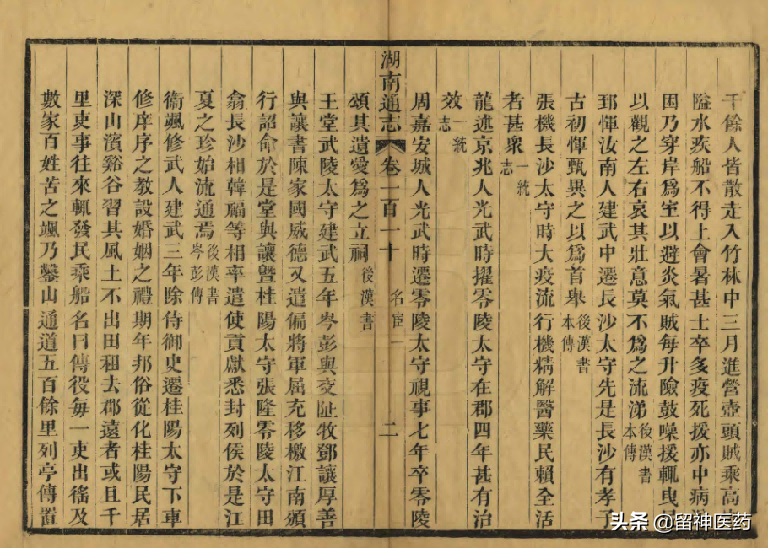 千餘人皆散走入竹林中三月進營壺頭賊乘高
隘水疾船不得上會暑甚士卒多疫死援亦中病
困乃穿岸爲室以避炎氣賊每升險鼓噪援輒曳
以觀之左右哀其壯意莫不爲之流涕後漢書本傳
郅惲汝南人建武中遷長沙太守先是長沙有孝子
古初惲甄異之以爲首舉後漢書本傳
張機長沙太守時大疫流行機精解醫藥民賴全活
者甚衆一統志
龍述京兆人光武時擢零陵太守在郡四年甚有治
效一統志
周嘉安城人光武時遷零陵太守視事七年卒零陵
湖南通志 卷一百一十 名宦一 二
頌其遺愛爲之立祠後漢書
王堂武陵太守建武五年岑彭與交阯牧鄧讓厚善
與讓書陳家國威德又遣偏將軍屈充移檄江南頒
行詔命於是堂與讓曁桂陽太守張隆零陵太守田
翕長沙相韓福等相率遣使貢獻悉封列侯於是江
夏之珍始流通焉後漢書岑彭傳
衞颯修武人建武三年除侍御史遷桂陽太守下車
修庠序之教設婚姻之禮期年邦俗從化桂陽民居
深山濱谿谷習其風土不出田租去郡遠者或且千
里吏事往來輒發民乘船名曰傳役每一吏出徭及
數家百姓苦之颯乃鑿山通道五百餘里列亭傳置
头条 @留神医药